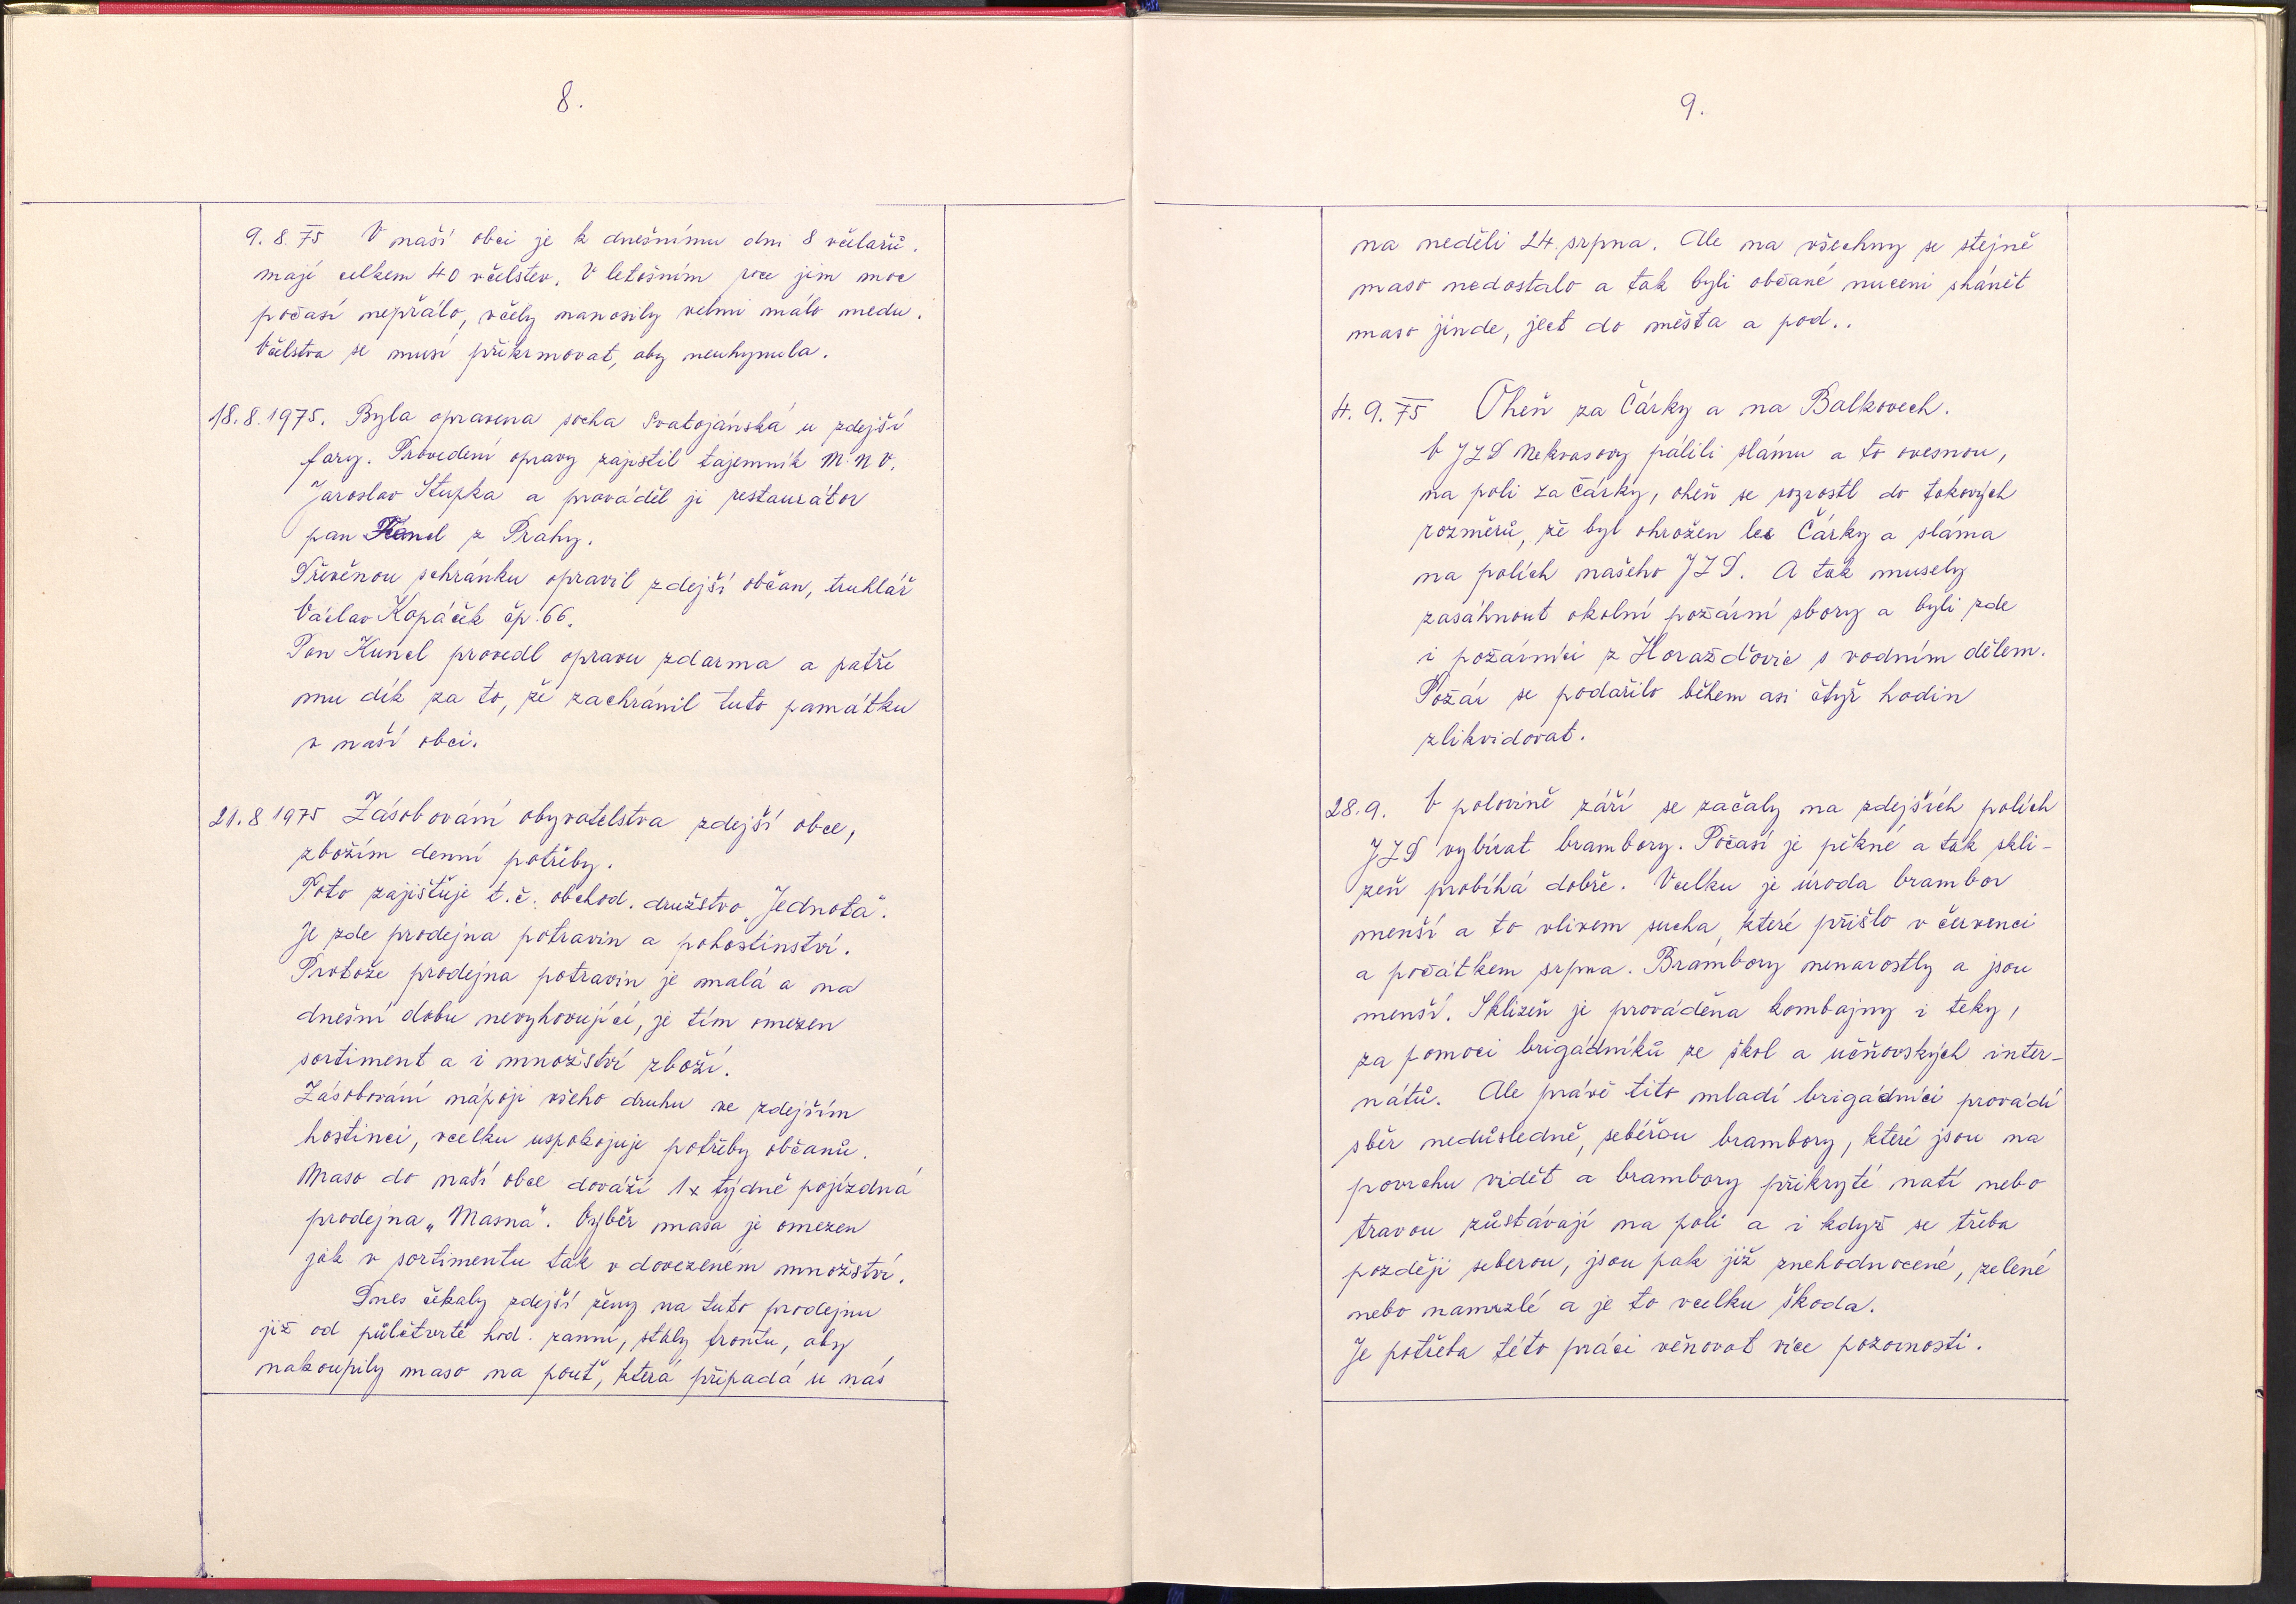 8.
9. 8. 75 V naší obci je k dnešnímu dni 8 včelařů.
mají celkem 40 včelstev. V letošním roce jim moc
počasí nepřálo, včely nanosily velmi málo medu.
Včelstva se musí přikrmovat, aby neuhynula.
18. 8. 1975. Byla opravena socha Svatojánská u zdejší
fary. Provedení opravy zajistil tajemník M.N.V.
Jaroslav Stupka a prováděl ji restaurátor
pan z Prahy.
Dřevěnou schránku opravil zdejší občan, truhlář
Václav Kopáček čp. 66.
Pan Kunel provedl opravu zdarma a patří
mu dík za to, že zachránil tuto památku
v naší obci.
21. 8 1975 Zásobování obyvatelstva zdejší obce,
zbožím denní potřeby.
Toto zajišťuje t.č. obchod. družstvo „Jednota“.
Je zde prodejna potravin a pohostinství.
Protože prodejna potravin je malá a na
dnešní dobu nevyhovující, je tím omezen
sortiment a i množství zboží.
Zásobování nápoji všeho druhu ve zdejším
hostinci, vcelku uspokojuje potřeby občanů.
Maso do naší obce dováží 1x týdně pojízdná
prodejna „Masna“. Výběr masa je omezen
jak v sortimentu tak v dovezeném množství.
Dnes čekaly zdejší ženy na tuto prodejnu
již od půlčtvrté hod. ranní, stály frontu, aby
nakoupily maso na pouť, která připadá u nás
9.
na neděli 24. srpna. Ale na všechny se stejně
maso nedostalo a tak byli občané nuceni shánět
maso jinde, ject do města a pod..
4. 9. 75 Oheň za Čárky a na Balkovech.
V JZD Nekvasovy pálili slámu a to ovesnou,
na poli za Čárky, oheň se rozrostl do takových
rozměrů, že byl ohrožen les Čárky a sláma
na polích našeho JZD. A tak musely
zasáhnout okolní požární sbory a byli zde
i požárníci z Horažďovic s vodním dělem.
Požár se podařilo během asi čtyř hodin
zlikvidovat.
28. 9. V polovině září se začaly na zdejších polích
JZD vybírat brambory. Počasí je pěkné a tak skli-
zeň probíhá dobře. Vcelku je úroda brambor
menší a to vlivem sucha, které přišlo v červenci
a počátkem srpna. Brambory nenarostly a jsou
menší. Sklizeň je prováděna kombajny i teky,
za pomoci brigádníků ze škol a učňovských inter-
nátů. Ale právě tito mladí brigádníci provádí
sběr nedůsledně, sebérou brambory, které jsou na
povrchu vidět a brambory přikryté natí nebo
travou zůstávají na poli a i když se třeba
později seberou, jsou pak již znehodnocené, zelené
nebo namrzlé a je to vcelku škoda.
Je potřeba této práci věnovat více pozornosti.